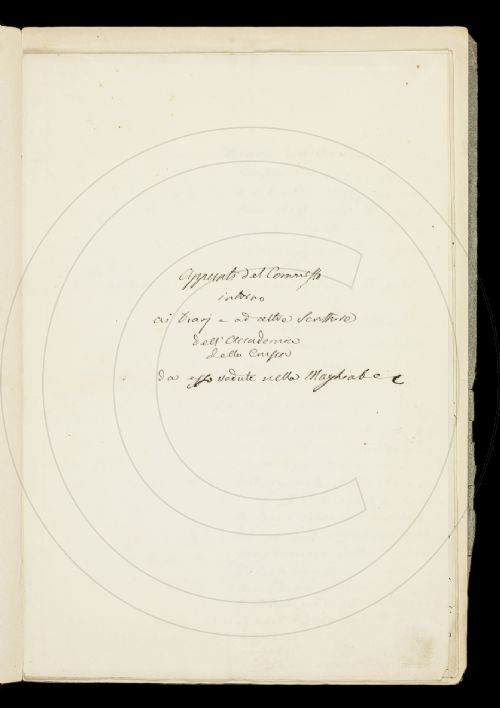 Appunti del Commesso
intorno
ai Diarj e ad altre Scritture
dell'Accademia
della Crusca
da esso vedute nella Magliab